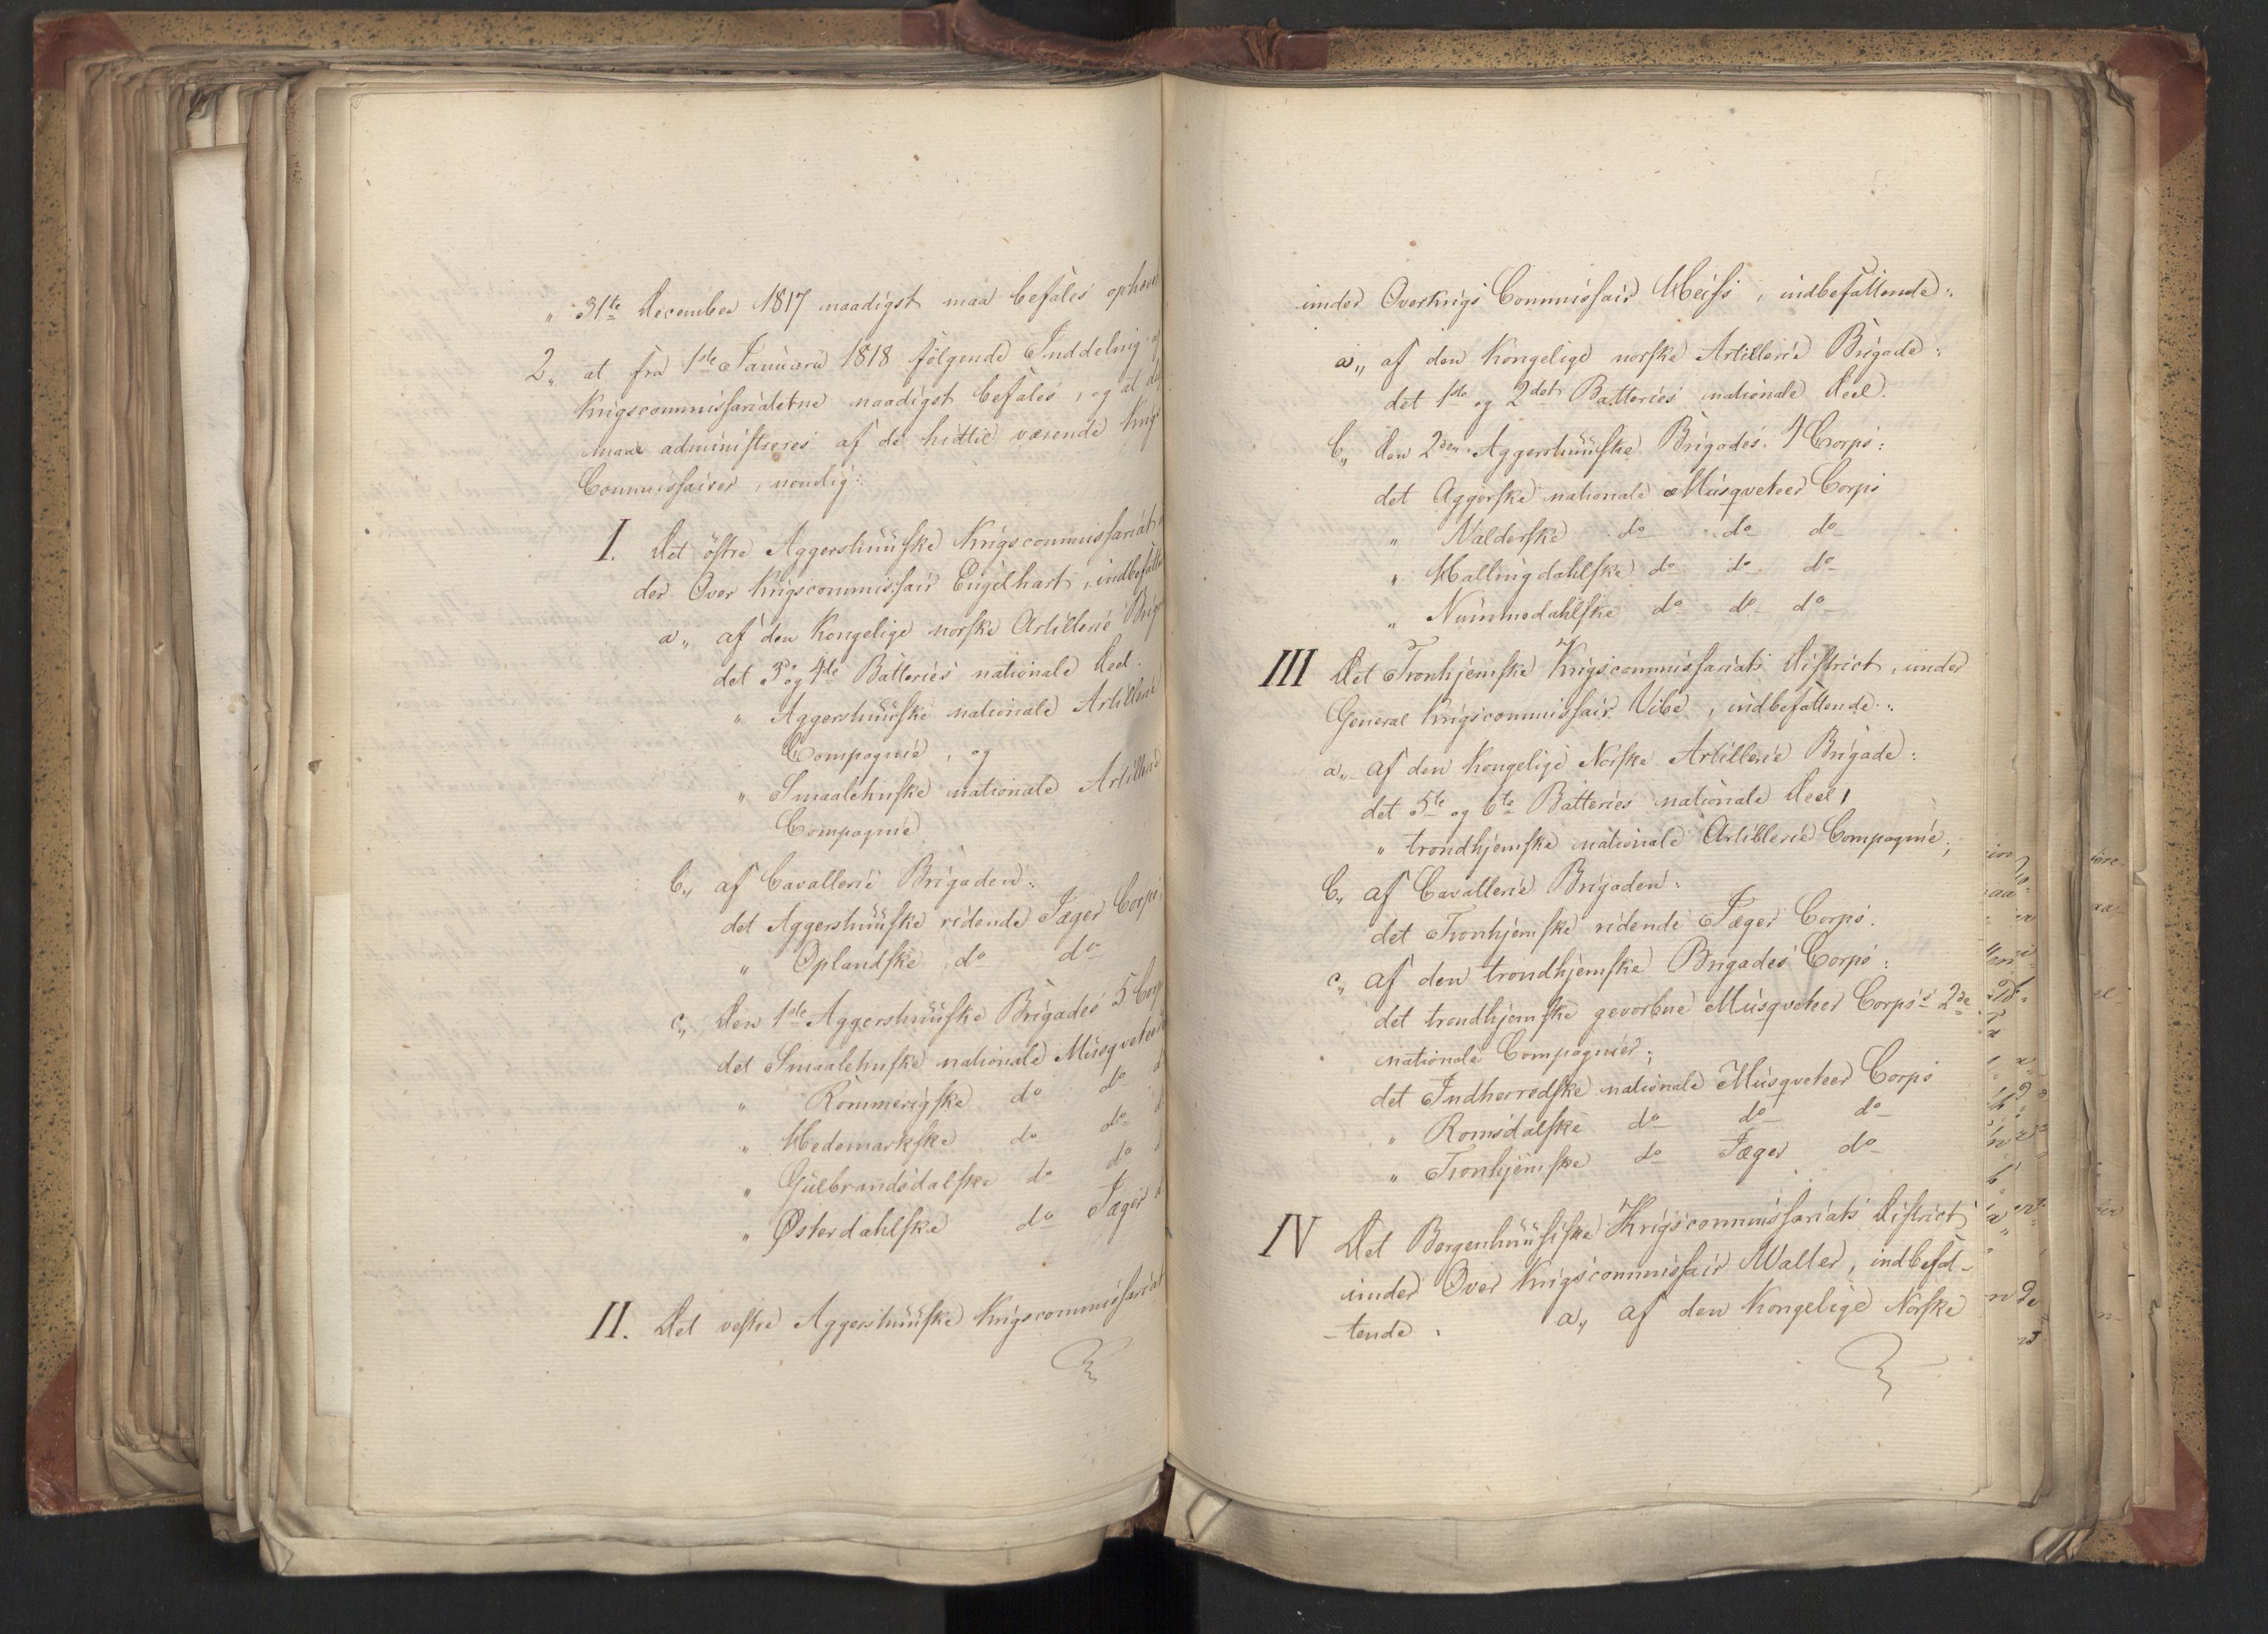 " 31te December 1817 naadigst maa befales ophæv
2, at fra 1ste Januarii 1818 følgende Inddeling af
Krigscommissariaterne naadigst befales, og at de
maae administreres af de hidtil værende Krigs
Commissairer, nemlig:
I. Det östre Aggershuuske Krigscommissariat
der Over Krigscommissair Engelhart, indbefatt
a„ af den Kongelige norske Artillerie Brig
det 3die og 4de Batteries nationale Deel.
" Aggershuuske nationale Artillerie
Compagnie, og
" Smaalehnske nationale Artillerie
Compagnie
b„ af Cavallerie Brigaden:
det Aggershuuske ridende Jæger Corps
" Oplandske do do
c„ Den 1ste Aggershuuske Brigades 5 Corps
det Smaalehnske nationale Musqveteer
" Rommerigske do do d
" Hedemarkske do do d
" Gulbrandsdalske do do d
" Østerdahlske do Jæger d
II. Det vestre Aggershuuske Krigscommissariat
under Overkrigs Commissair Heiss, indbefattende:
a„ af den Kongelige norske Artillerie Brigade:
det 1ste og 2det Batteries nationale Deel.
b„ Den 2den Aggershuuske Brigades 4 Corps:
det Aggerske nationale Musqveteer Corps
" Valderske do do do
" Hallingdahlske do do do
" Nummedahlske do do do
III Det Tronhjemske Krigscommissariats District, under
General Krigscommissair Vibe, indbefattende:
a„ af den Kongelige Norske Artillerie Brigade:
det 5te og 6te Batteries nationale Deel,
" trondhjemske nationale Artillerie Compagnie;
b„ af Cavallerie Brigaden:
det Tronhjemske ridende Jæger Corps.
c„ af den trondhjemske Brigades Corps:
det trondhjemske gevorbne Musqveteer Corps's 2de
nationale Compagnier;
det Indherredske nationale Musqveteer Corps
" Romsdalske do do do
" Tronhjemske do Jæger do
IV Det Bergenhuusiske Krigscommissariats District
under Over Krigscommissair Walter, indbefat-
-tende: a„ af den Kongelige Norske